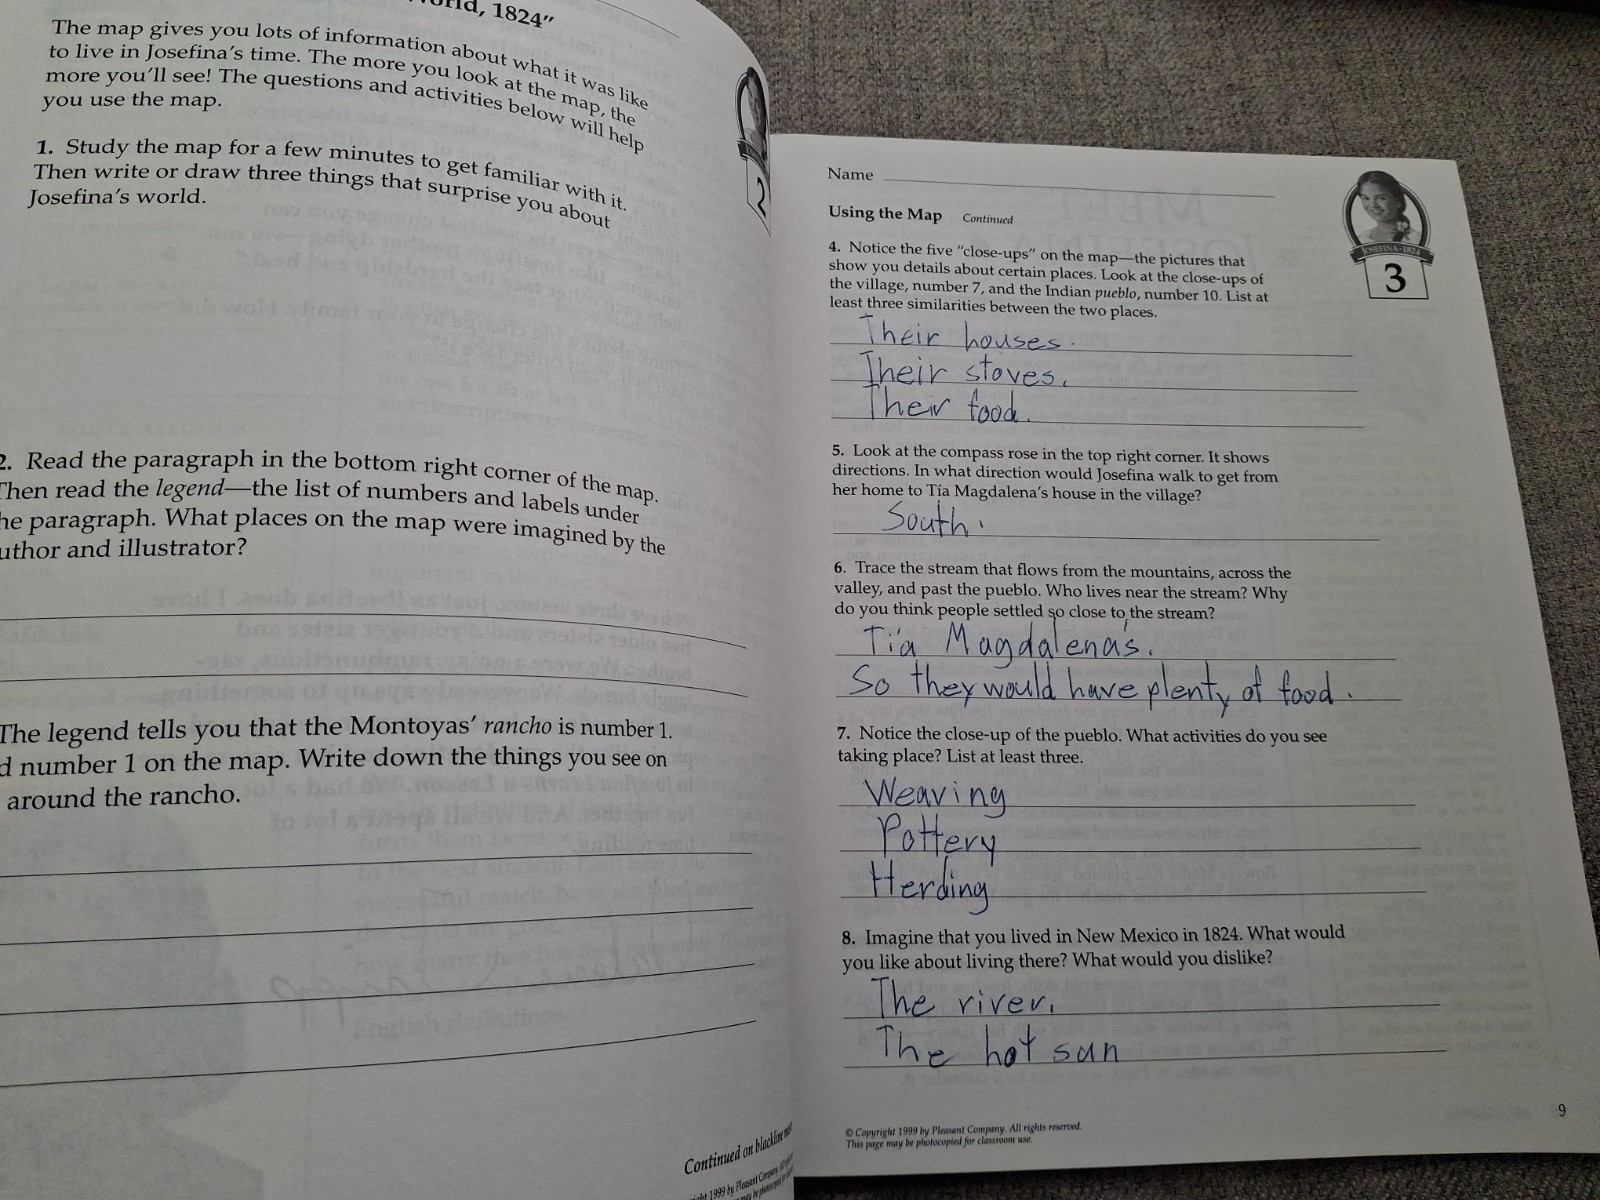 World, 1824"
The map gives you lots of information about what it was like
to live in Josefina's time. The more you look at the map, the
more you'll see! The questions and activities below will help
you use the map.
1. Study the map for a few minutes to get familiar with it.
Then write or draw three things that surprise you about
Josefina's world.
2
2. Read the paragraph in the bottom right corner of the map.
Then read the legend—the list of numbers and labels under
he paragraph. What places on the map were imagined by the
uthor and illustrator?
The legend tells you that the Montoyas' rancho is number 1.
d number 1 on the map. Write down the things you see on
around the rancho.
Continued on blackline
1999 by Pleasant Company.
Name
Using the Map Continued
JOSEFINA · 1824
3
4. Notice the five "close-ups" on the map—the pictures that
show you details about certain places. Look at the close-ups of
the village, number 7, and the Indian pueblo, number 10. List at
least three similarities between the two places.
Their houses.
Their stoves.
Their food.
5. Look at the compass rose in the top right corner. It shows
directions. In what direction would Josefina walk to get from
her home to Tía Magdalena's house in the village?
South.
6. Trace the stream that flows from the mountains, across the
valley, and past the pueblo. Who lives near the stream? Why
do you think people settled so close to the stream?
Tiá Magdalena's.
So they would have plenty of food.
7. Notice the close-up of the pueblo. What activities do you see
taking place? List at least three.
Weaving
Pottery
Herding
8. Imagine that you lived in New Mexico in 1824. What would
you like about living there? What would you dislike?
The river.
The hot sun
© Copyright 1999 by Pleasant Company. All rights reserved.
This page may be photocopied for classroom use.
9